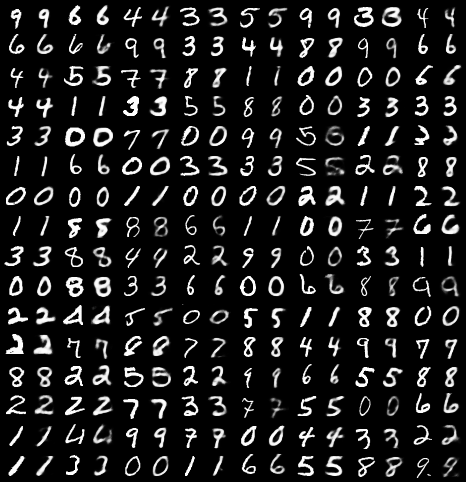 9 9 6 6 4 4 3 3 5 5 9 9 3 3 4 4
6 6 6 6 9 9 3 3 4 4 8 8 9 9 6 6
4 4 5 5 7 7 8 8 1 1 0 0 0 0 6 6
4 4 1 1 3 3 5 5 8 8 0 0 3 3 3 3
3 3 0 0 7 7 0 0 9 9 5 5 1 1 2 2
1 1 6 6 0 0 3 3 3 3 5 5 2 2 8 8
0 0 0 0 1 1 0 0 0 0 2 2 1 1 2 2
1 1 8 8 8 8 6 6 1 1 0 0 7 7 6 6
3 3 8 8 4 4 2 2 9 9 0 0 3 3 1 1
0 0 8 8 3 3 6 6 0 0 6 6 8 8 9 9
2 2 4 4 5 5 0 0 5 5 1 1 8 8 0 0
2 2 7 7 8 8 7 7 8 8 4 4 9 9 7 7
8 8 2 2 5 5 2 2 9 9 6 6 5 5 8 8
2 2 2 2 7 7 3 3 7 7 5 5 0 0 6 6
1 1 4 4 9 9 7 9 0 0 4 4 3 3 2 2
1 1 3 3 0 0 1 1 6 6 5 5 8 8 9 9